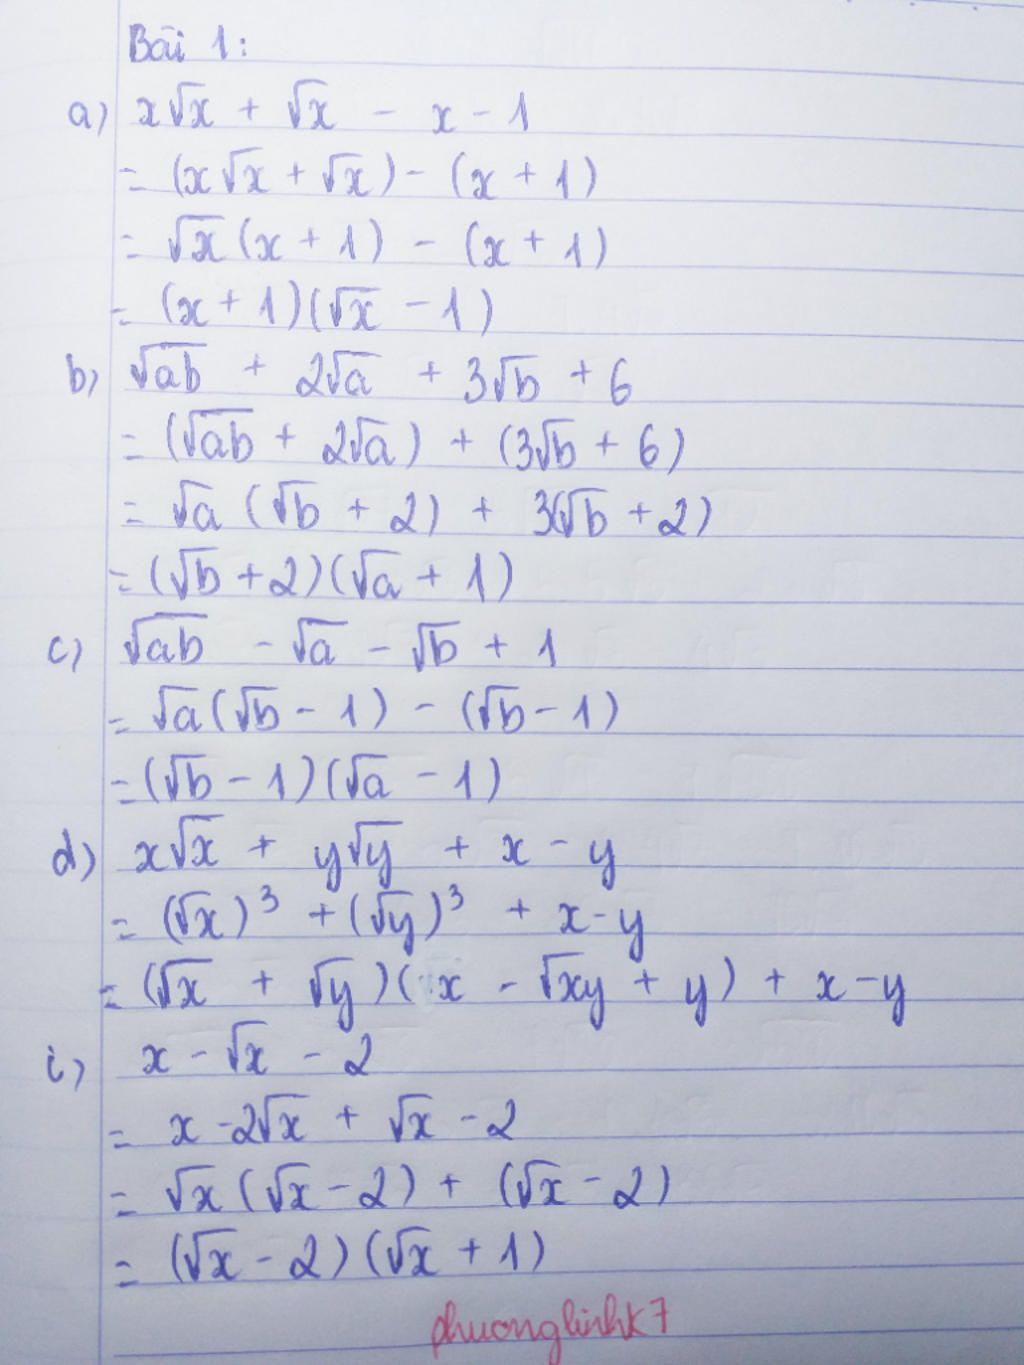 Bài 1:
a) x√x + √x - x - 1
= (x√x + √x) - (x + 1)
= √x (x + 1) - (x + 1)
= (x + 1)(√x - 1)
b) √ab + 2√a + 3√b + 6
= (√ab + 2√a) + (3√b + 6)
= √a (√b + 2) + 3(√b + 2)
= (√b + 2)(√a + 1)
c) √ab - √a - √b + 1
= √a (√b - 1) - (√b - 1)
= (√b - 1)(√a - 1)
d) x√x + y√y + x - y
= (√x)³ + (√y)³ + x - y
= (√x + √y)(x - √xy + y) + x - y
i) x - √x - 2
= x - 2√x + √x - 2
= √x (√x - 2) + (√x - 2)
= (√x - 2)(√x + 1)
phuonglinhk7